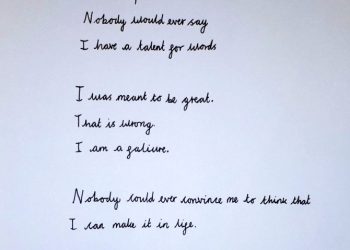 Nobody would ever say
I have a talent for words
I was meant to be great.
That is wrong.
I am a failure.
Nobody could ever convince me to think that
I can make it in life.